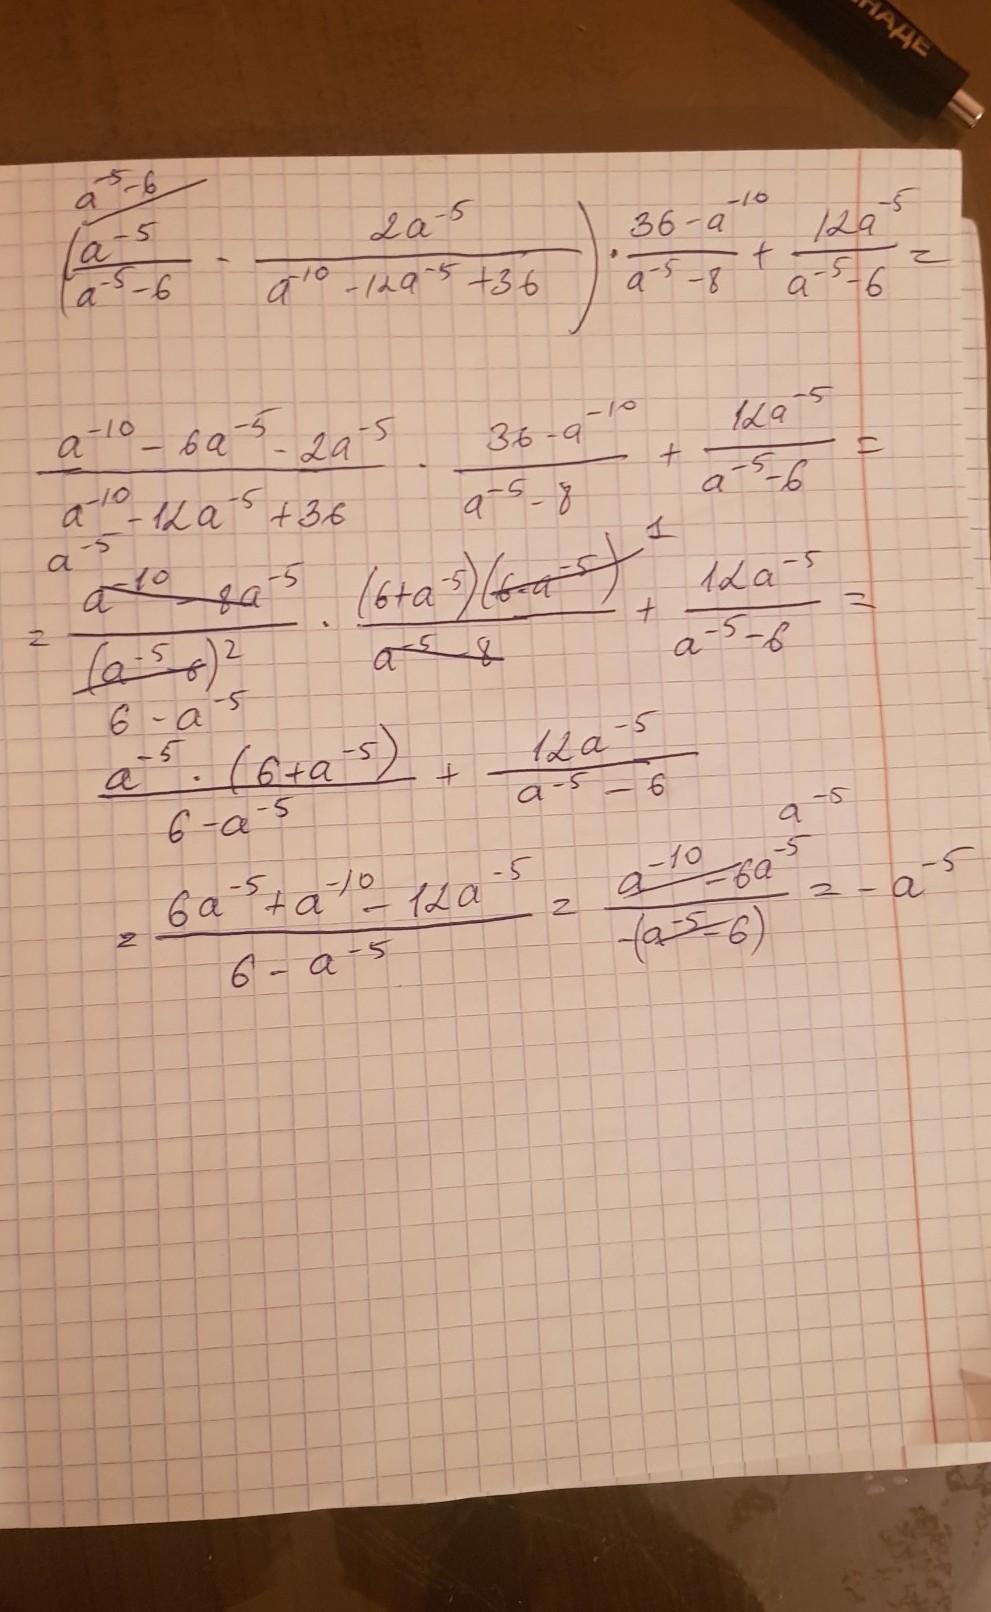 НАДЕ
a⁻⁵-6
(a⁻⁵/(a⁻⁵-6) - 2a⁻⁵/(a⁻¹⁰-12a⁻⁵+36)) · (36-a⁻¹⁰)/(a⁻⁵-8) + 12a⁻⁵/(a⁻⁵-6) =
(a⁻¹⁰-6a⁻⁵-2a⁻⁵)/(a⁻¹⁰-12a⁻⁵+36) · (36-a⁻¹⁰)/(a⁻⁵-8) + 12a⁻⁵/(a⁻⁵-6) =
a⁻⁵ 1
= (a⁻¹⁰-8a⁻⁵)/(a⁻⁵-6)² · (6+a⁻⁵)(6-a⁻⁵)/(a⁻⁵-8) + 12a⁻⁵/(a⁻⁵-6) =
6-a⁻⁵
a⁻⁵·(6+a⁻⁵)/(6-a⁻⁵) + 12a⁻⁵/(a⁻⁵-6)
a⁻⁵
= (6a⁻⁵+a⁻¹⁰-12a⁻⁵)/(6-a⁻⁵) = (a⁻¹⁰-6a⁻⁵)/(-(a⁻⁵-6)) = -a⁻⁵